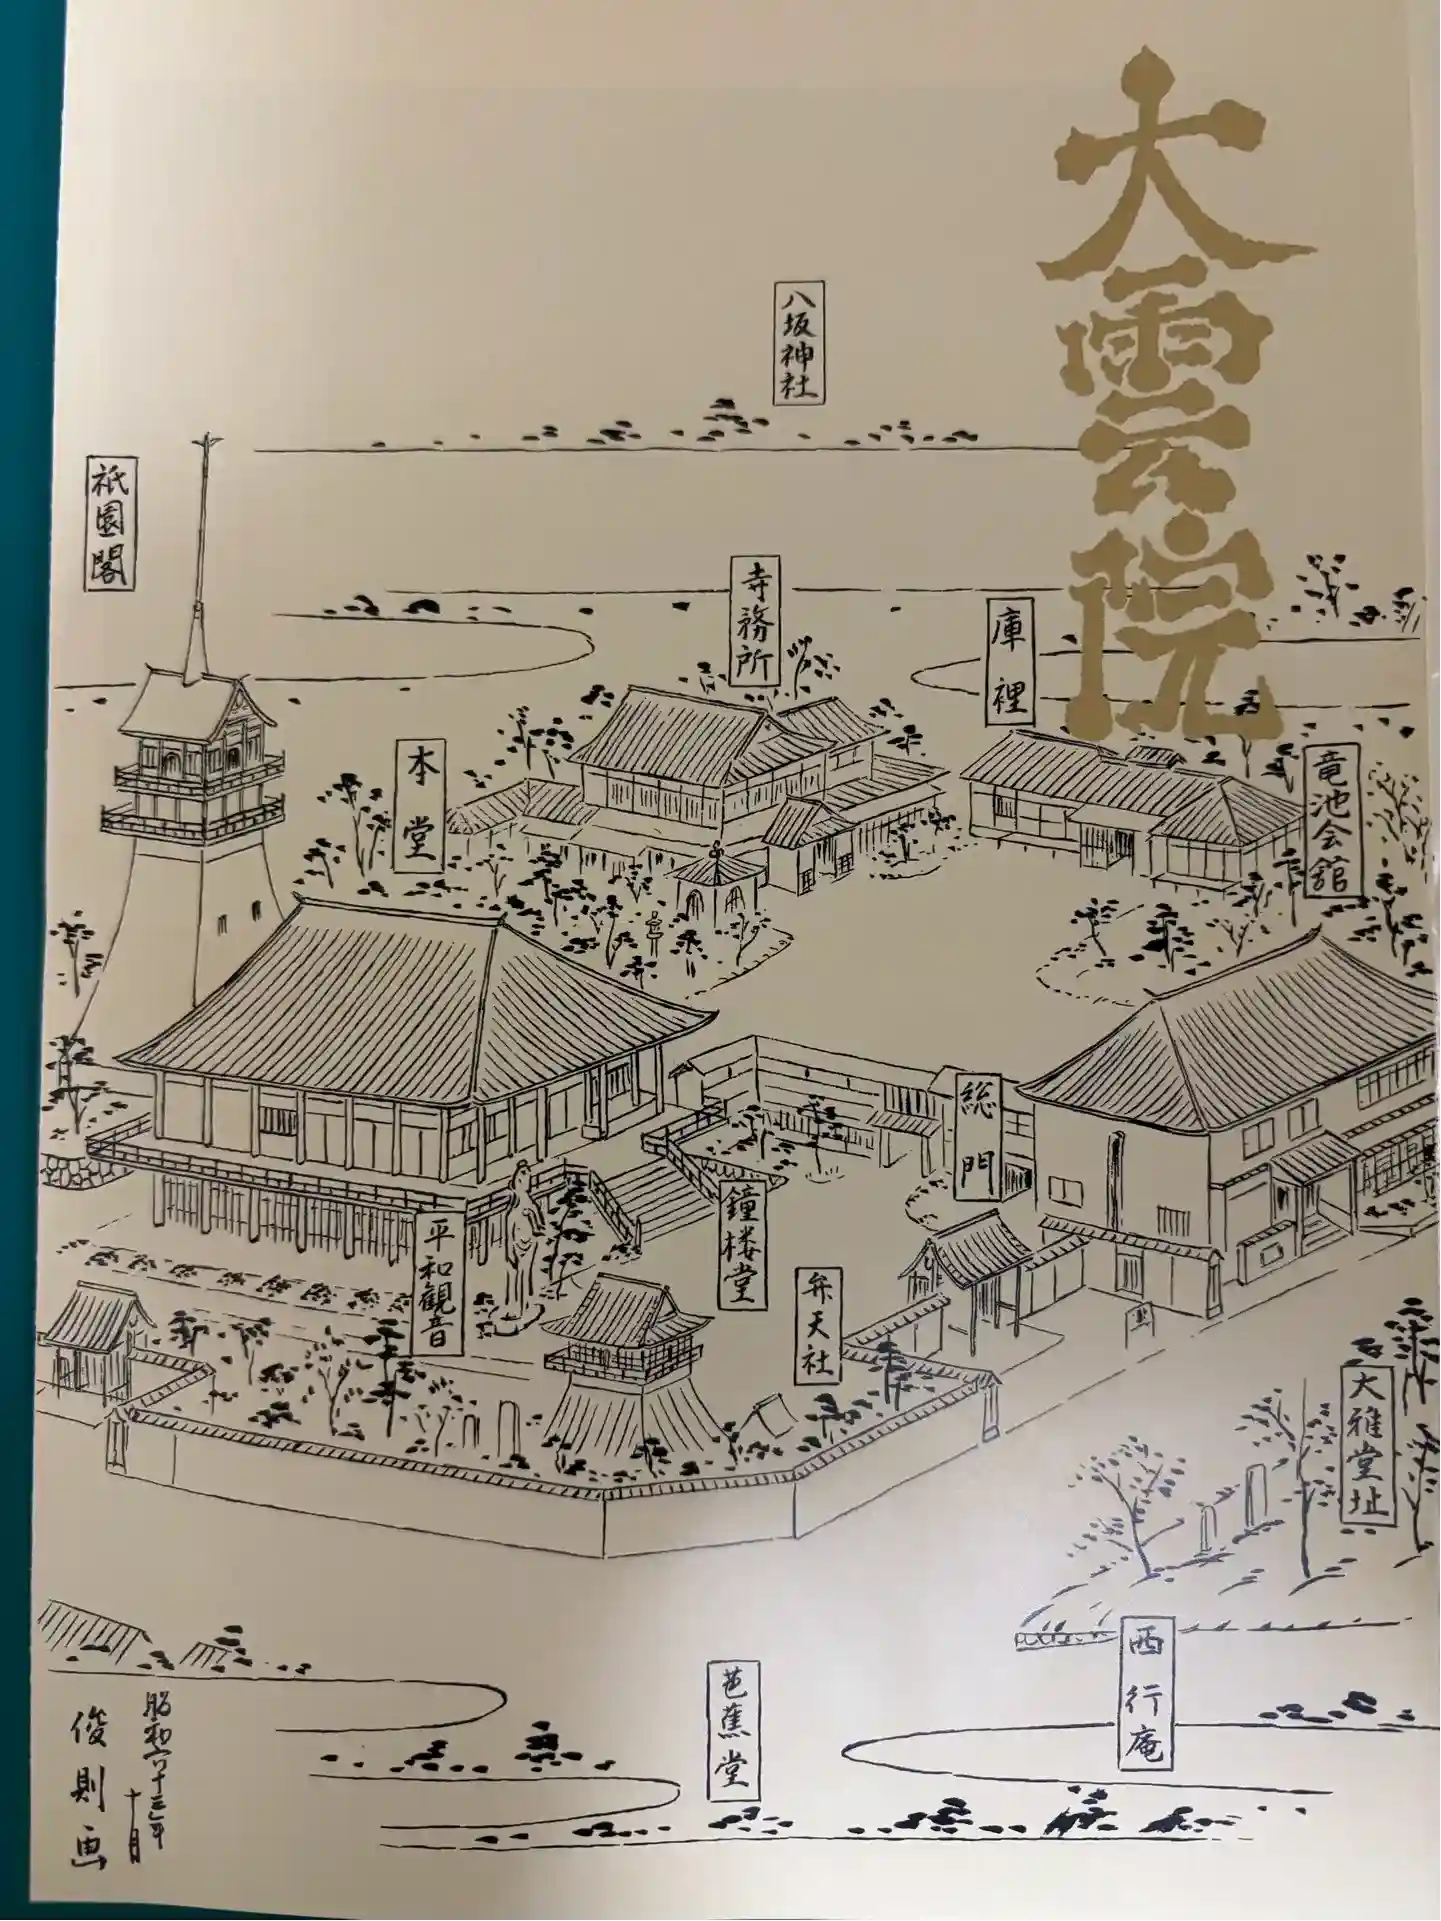 大雲院
八坂神社
祇園閣
寺務所
庫裡
本堂
竜池会舘
総門
鐘楼堂
平和観音
弁天社
大雅堂址
西行庵
芭蕉堂
昭和六十三年
十月
俊則画